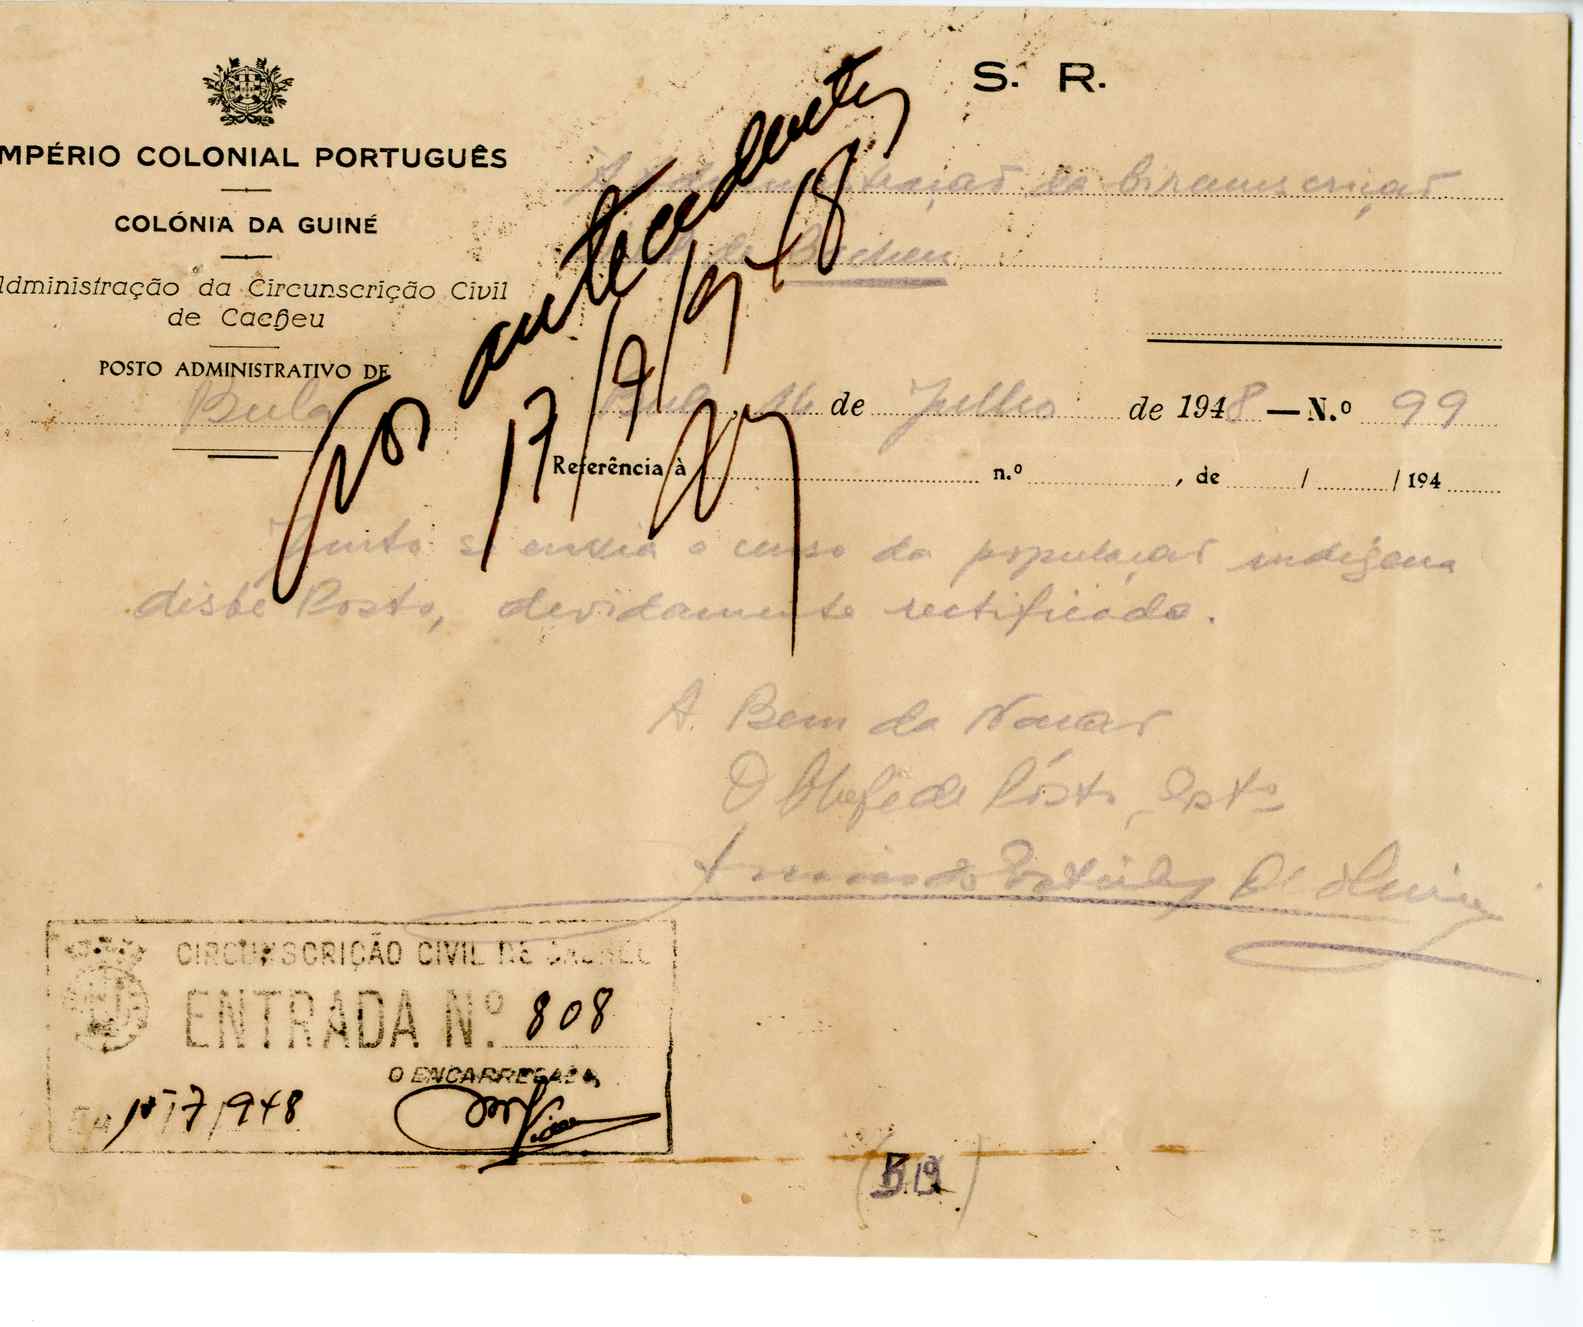 S. R.
MPÉRIO COLONIAL PORTUGUÊS
COLÓNIA DA GUINÉ
Administração da Circunscrição Civil
de Cacheu
POSTO ADMINISTRATIVO DE
Bula
À Administração da Circunscrição
Civil de Cacheu
Bula, 16 de Julho de 1948 — N.º 99
Referência à n.º , de / / 194
Aos antecedentes
17/7/948
Junto se envia o censo da população indígena
deste Posto, devidamente rectificado.
A Bem da Nação
O Chefe de Pôsto,
CIRCUNSCRIÇÃO CIVIL DE CACHEU
ENTRADA N.º 808
O ENCARREGADO,
Em 17/7/948
(B.19)